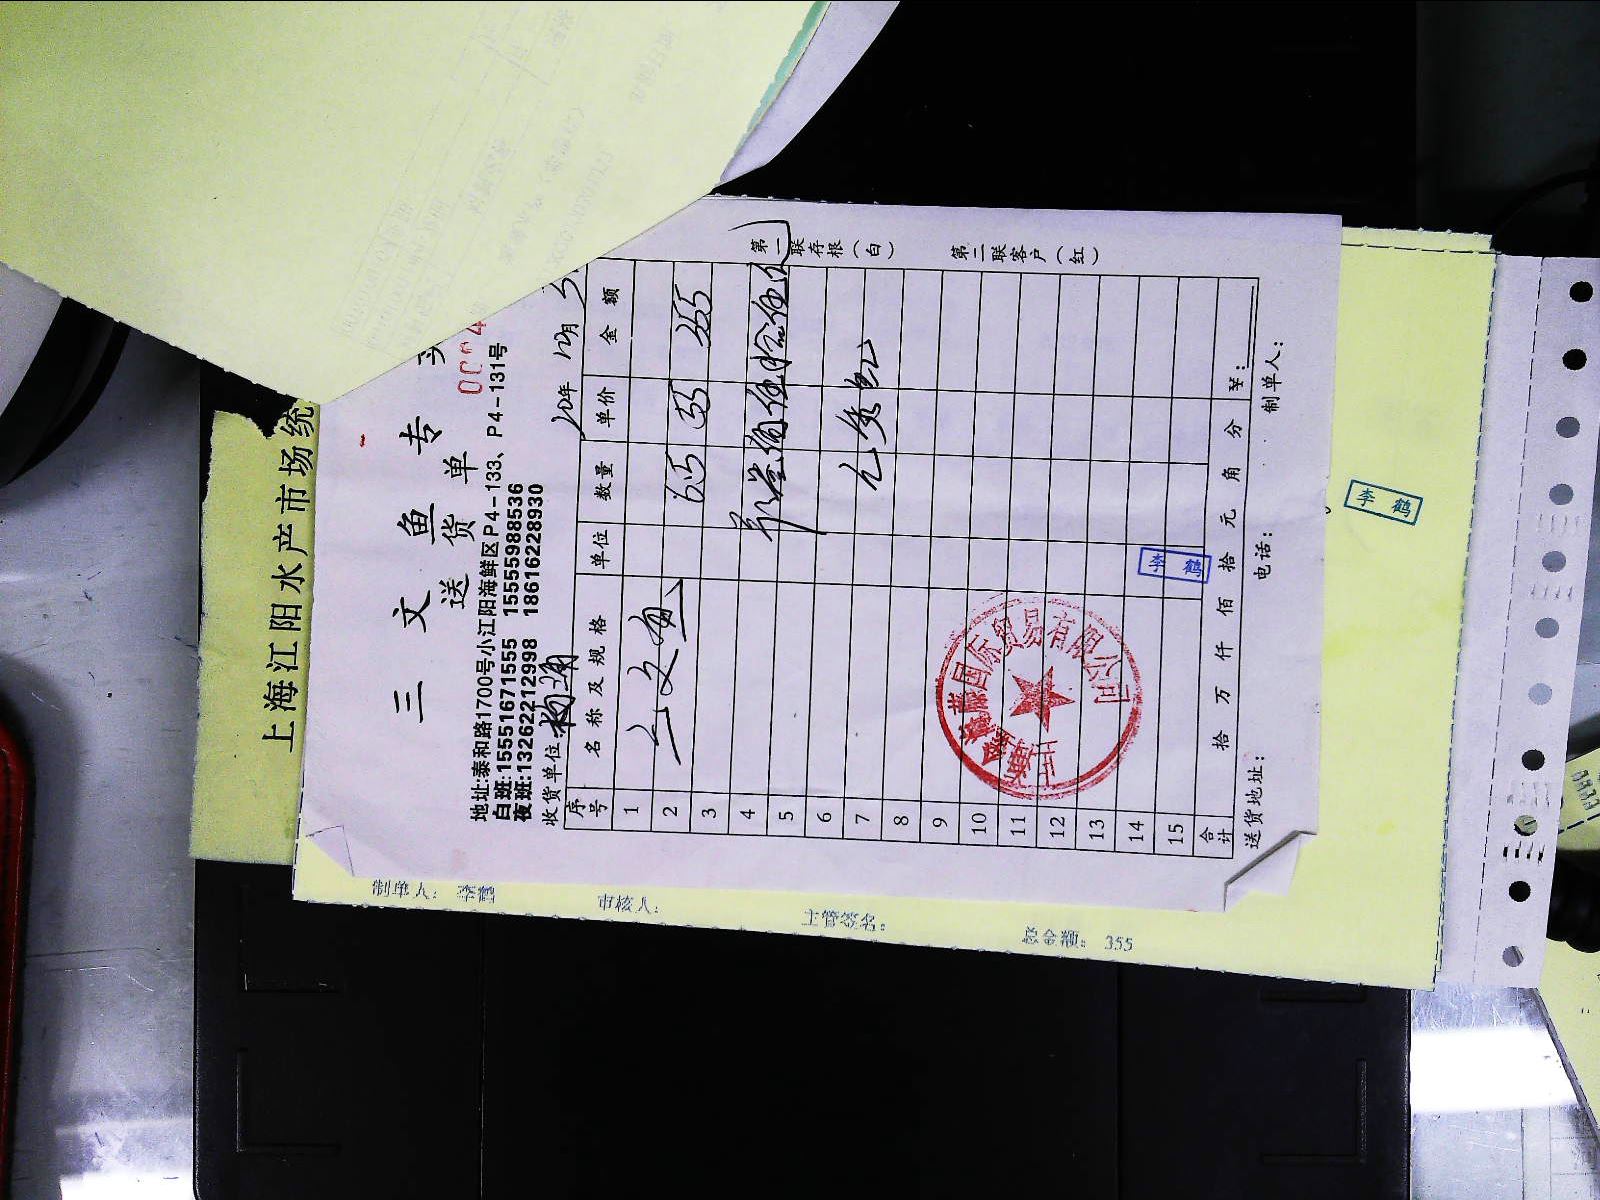 上海江阳水产市场统
三文鱼专
送货单
地址:泰和路1700号小江阳海鲜区P4-133、P4-131号
白班:15551671555 15555988536
夜班:13262212998 18616228930
收货单位
20年12月3
序号 名称及规格 单位 数量 单价 金额
1
2 三文鱼 6.5 55 355
3
4
5
6
7
8
9
10
11
12
13
14
15
合计 拾 万 仟 佰 拾 元 角 分 ¥:
送货地址: 电话: 制单人:
第一联存根(白) 第二联客户(红)
国际贸易有限公司
李鹤
李鹤
制单人: 李鹤 审核人: 主管签名: 总金额: 355